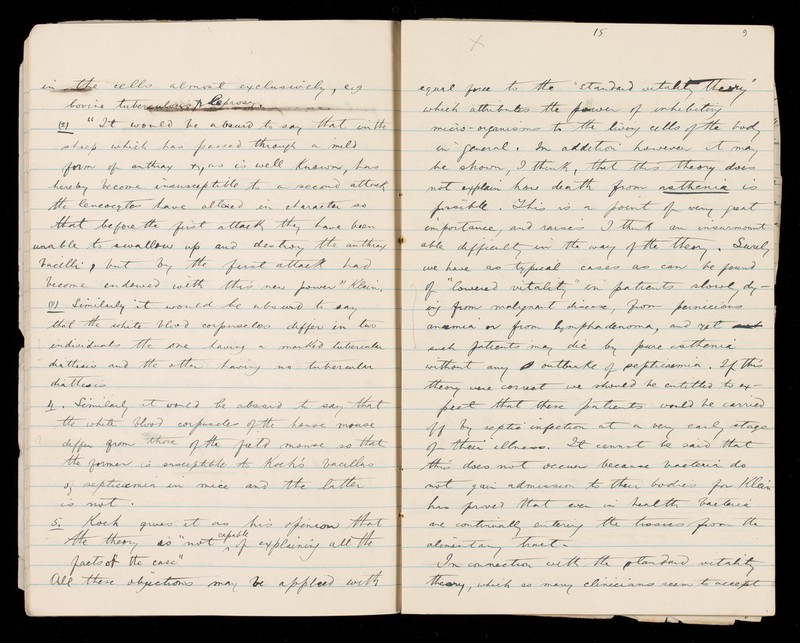 in the cells almost exclusively, e.g
bovine tuberculosis & leprosy.
(2) "It would be absurd to say that in the
sheep which has passed through a mild
form of anthrax &, as is well known, has
hereby become insusceptible to a second attack
the leucocytes have altered in character so
that before the first attack they have been
unable to swallow up and destroy the anthrax
bacilli, but by the first attack had
become endowed with this new power" Klein.
(3) Similarly it would be absurd to say
that the white blood corpuscles differ in two
individuals the one having a marked tubercular
diathesis and the other having no tubercular
diathesis
4. Similarly it would be absurd to say that
the white blood corpuscles of the house mouse
differ from those of the field mouse so that
the former is susceptible to Koch's bacillus
of septicaemia in mice and the latter
is not.
5. Koch gives it as his opinion that
the theory is "not capable of explaining all the
facts of the case"
All these objections may be applied with
15 9
equal force to the "standard vitality theory"
which attributes the power of inhibiting
micro-organisms to the living cells of the body
in general. In addition however it may
be shown, I think, that this theory does
not explain how death from asthenia is
possible. This is a point of very great
importance, and raises I think an insurmount
able difficulty in the way of the theory. Surely
we have as typical cases as can be found
of "lowered vitality" in patients slowly dy-
ing from malignant disease, from pernicious
anaemia or from lymphadenoma, and yet
such patients may die by pure asthenia
without any outbreak of septicaemia. If this
theory were correct we should be entitled to ex-
pect that these patients would be carried
off by septic infection at a very early stage
of their illness. It cannot be said that
this does not occur because bacteria do
not gain admission to their bodies for Klein
has proved that even in health bacteria
are continually entering the tissues from the
alimentary tract.
In connection with the standard vitality
theory, which so many clinicians seem to accept